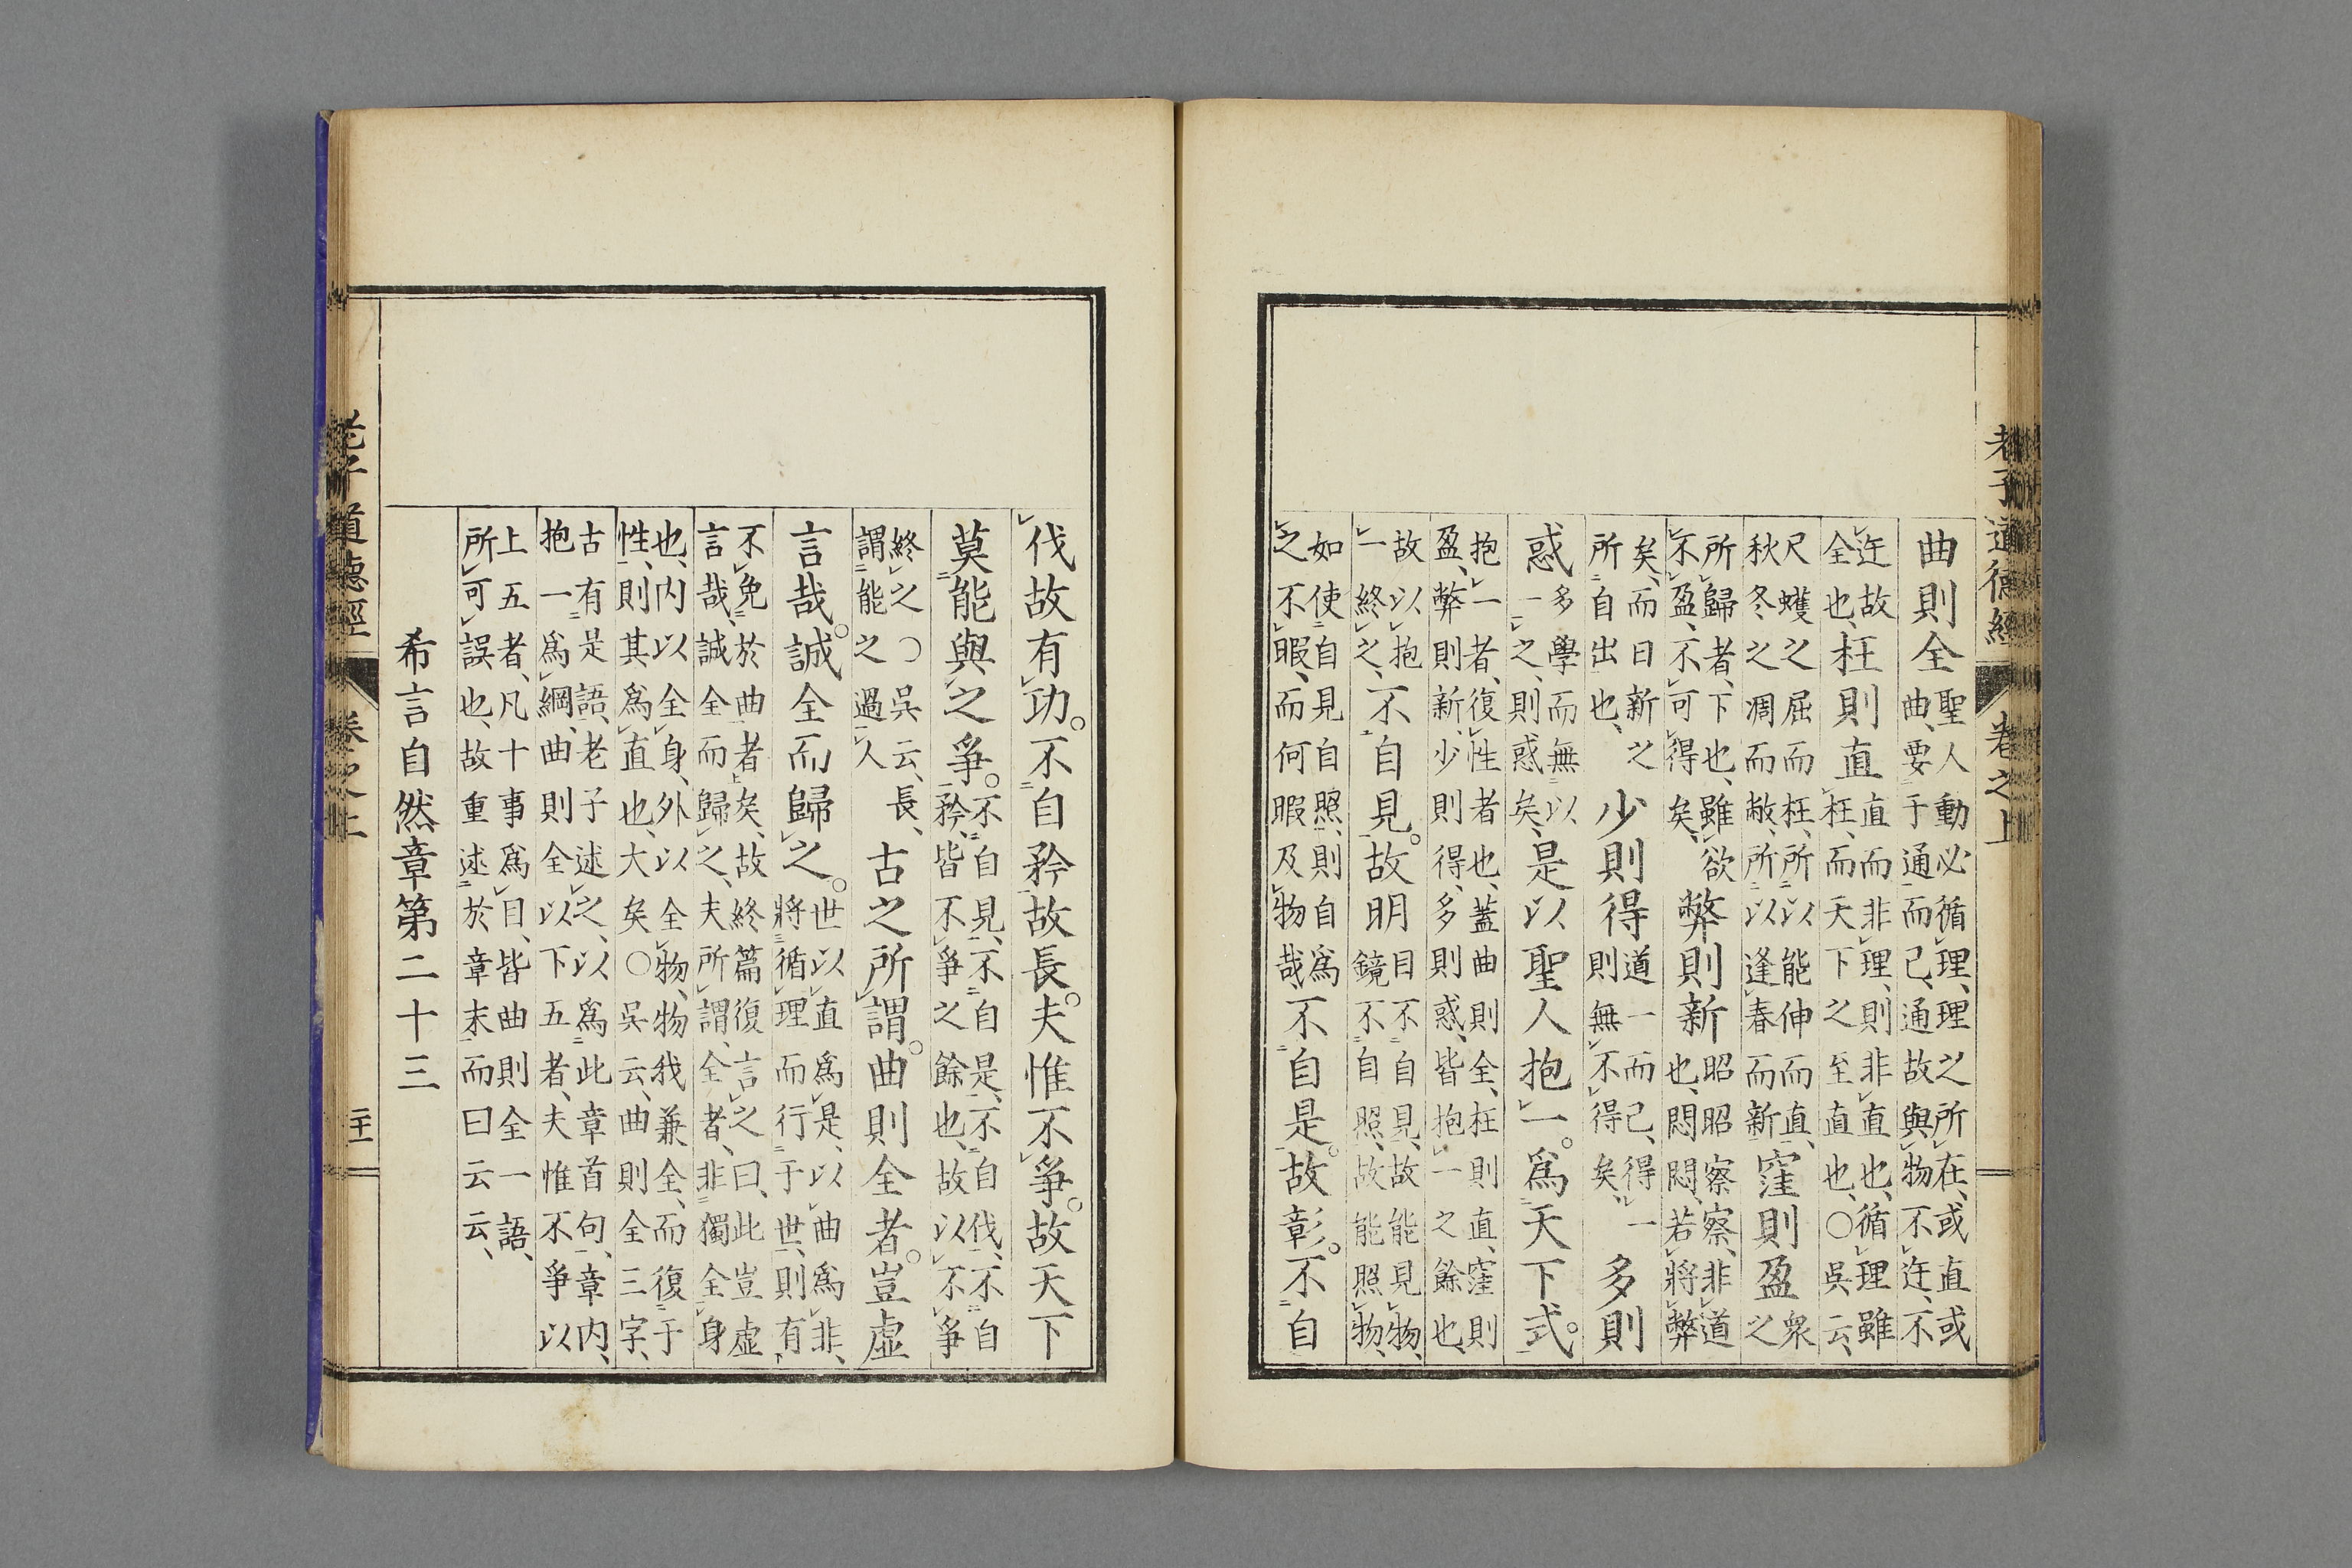 老子道德經 卷之上
曲則全聖人動必循理、理之所在、或直或
曲、要于通而已、通故與物不迕、不
迕故全也、枉則直直而非理、則非直也、循理雖
枉、而天下之至直也、○吳云、
尺蠖之屈而枉、所以能伸而直、
秋冬之凋而敝、所以逢春而新窪則盈衆之
所歸者、下也、雖欲
不盈、不可得矣、弊則新昭昭察察、非道
也、悶悶、若將弊
矣、而日新之
所自出也、少則得道一而已、得一
則無不得矣、多則
惑多學而無以
一之、則惑矣、是以聖人抱一。爲天下式。
抱一者、復性者也、蓋曲則全、枉則直、窪則
盈、弊則新、少則得、多則惑、皆抱一之餘也、
故以抱
一終之、不自見。故明目不自見、故能見物、
鏡不自照、故能照物、
如使自見自照、則自爲
之不暇、而何暇及物哉、不自是。故彰。不自
伐故有功。不自矜故長。夫惟不爭。故天下
莫能與之爭。不自見、不自是、不自伐、不自
矜、皆不爭之餘也、故以不爭
終之○吳云、長、
謂能之過人古之所謂。曲則全者。豈虛
言哉。誠全而歸之。世以直爲是、以曲爲非、
將循理而行于世、則有
不免於曲者矣、故終篇復言之曰、此豈虛
言哉、誠全而歸之、夫所謂全者、非獨全身
也、内以全身、外以全物、物我兼全、而復于
性、則其爲直也、大矣○吳云、曲則全三字、
古有是語、老子述之、以爲此章首句、章内、
抱一爲綱、曲則全以下五者、夫惟不爭以
上五者、凡十事爲目、皆曲則全一語、
所可誤也、故重述於章末而曰云云、
希言自然章第二十三
老子道德經 卷之上 二十一